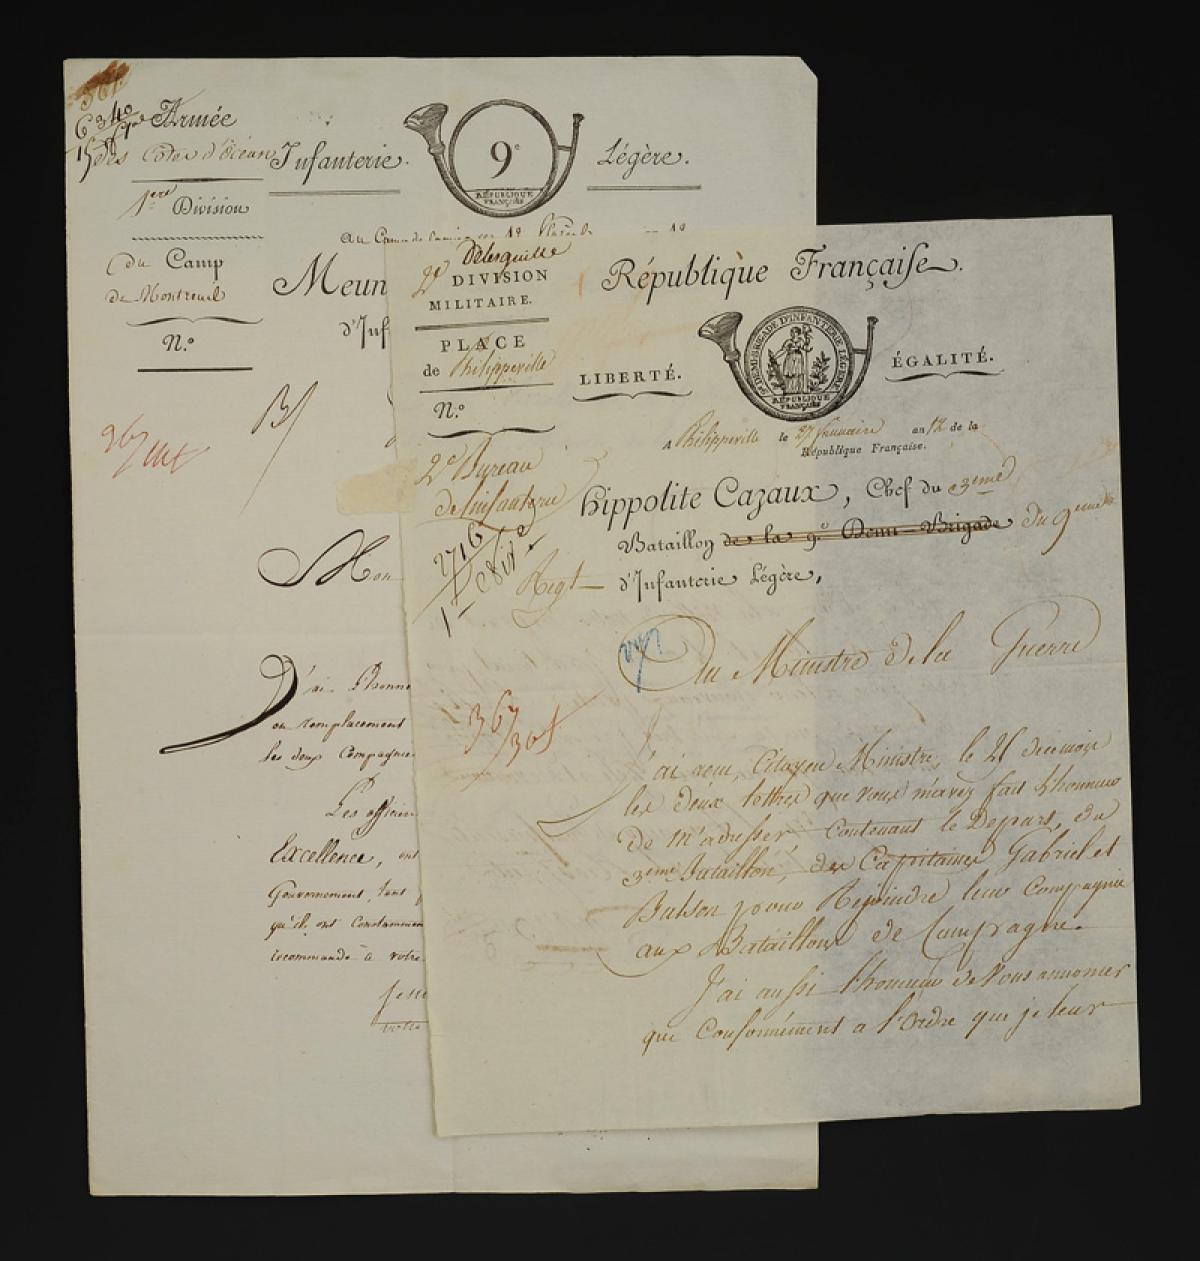 361
6340
Armée
des Côtes d'Océan
Infanterie.
9e
RÉPUBLIQUE
FRANÇAISE
Légère.
1ere Division
Au Camp de
Meun
d'Inf
du Camp
de Montreuil
N.º
B/
367
Mon
J'ai l'honne
en remplacement
les deux Compagnie
Les officier
Excellence, ont
Gouvernement, tant
qu'ils ont constamment
recommande à votre
Je suis
votre
2e DIVISION
MILITAIRE.
PLACE
de Philippeville
N.º
2e Bureau
de l'infanterie
2716
République Française.
LIBERTÉ.
9e DEMI-BRIGADE D'INFANTERIE LÉGÈRE
RÉPUBLIQUE
FRANÇAISE
ÉGALITÉ.
A Philippeville le 27 Januaire an 12 de la
République Française.
Hippolite Cazaux, Chef du 3eme
Bataillon de la 9e Demi-Brigade du 9eme
Regt d'Infanterie Légère,
Au Ministre de la Guerre
367
J'ai recu, Citoyen Ministre, le 21
les deux lettres que vous m'avez fait l'honneur
de m'adresser, contenant le Départ, du
3eme Bataillon, des Capitaines Gabriel et
Butson pour Rejoindre leur Compagnie
aux Bataillons de Campagne.
J'ai aussi l'honneur de vous annoncer
que Conformément a l'Ordre que je leur